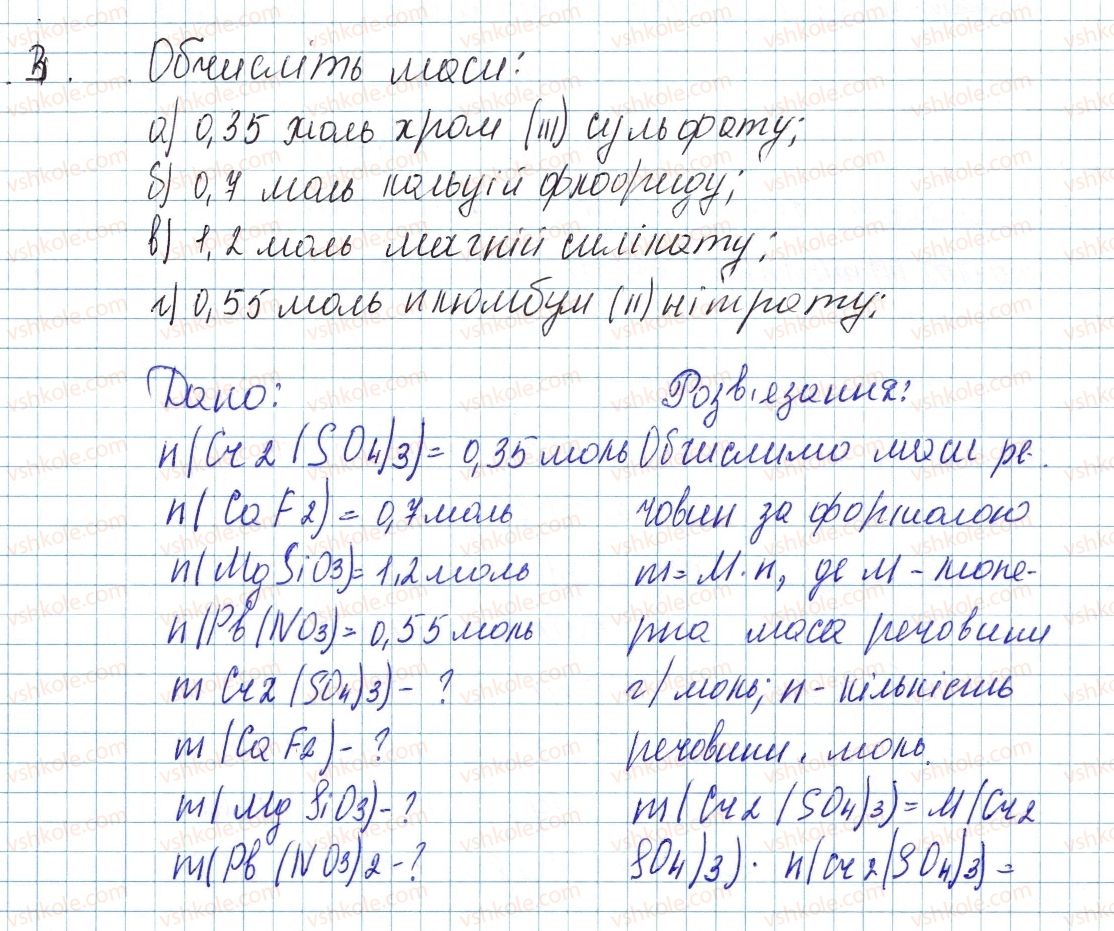 3. Обчисліть маси:
а) 0,35 моль хром (III) сульфату;
б) 0,7 моль кальцій флюориду;
в) 1,2 моль магній силікату;
г) 0,55 моль плюмбум (II) нітрату;
Дано:
n(Cr2(SO4)3)= 0,35 моль
n(CaF2) = 0,7 моль
n(MgSiO3)= 1,2 моль
n(Pb(NO3)= 0,55 моль
m Cr2(SO4)3) - ?
m(CaF2) - ?
m(MgSiO3) - ?
m(Pb(NO3)2 - ?
Розв'язання:
Обчислимо маси ре-
човин за формолою
m= M·n, де M - моле-
рна маса речовини
г/моль; n - кількість
речовини, моль.
m(Cr2(SO4)3)= M(Cr2
SO4)3) · n(Cr2(SO4)3) =
vshkole.com